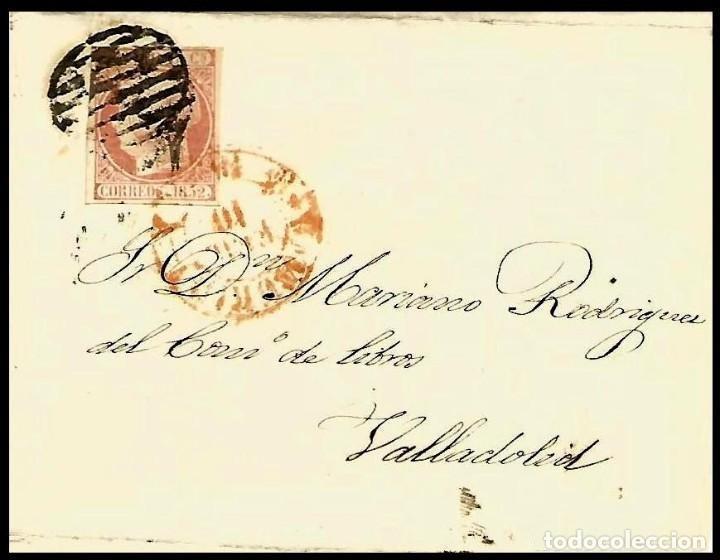 CORREOS 1852
Sr. Dn. Mariano Rodriguez
del Comº de libros
Valladolid
todocoleccion